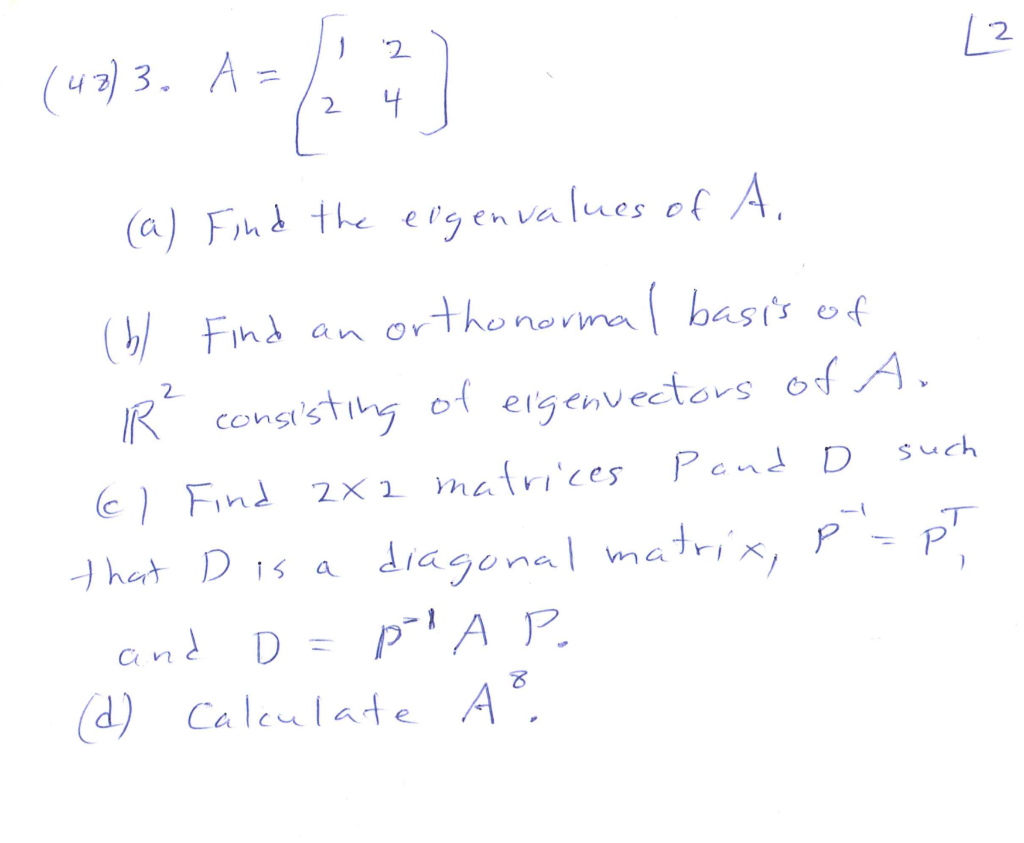 (48) 3. A = [1 2
2 4]
L2
(a) Find the eigenvalues of A.
(b) Find an orthonormal basis of
ℝ² consisting of eigenvectors of A.
(c) Find 2×2 matrices P and D such
that D is a diagonal matrix, P⁻¹ = Pᵀ,
and D = P⁻¹ A P.
(d) Calculate A⁸.